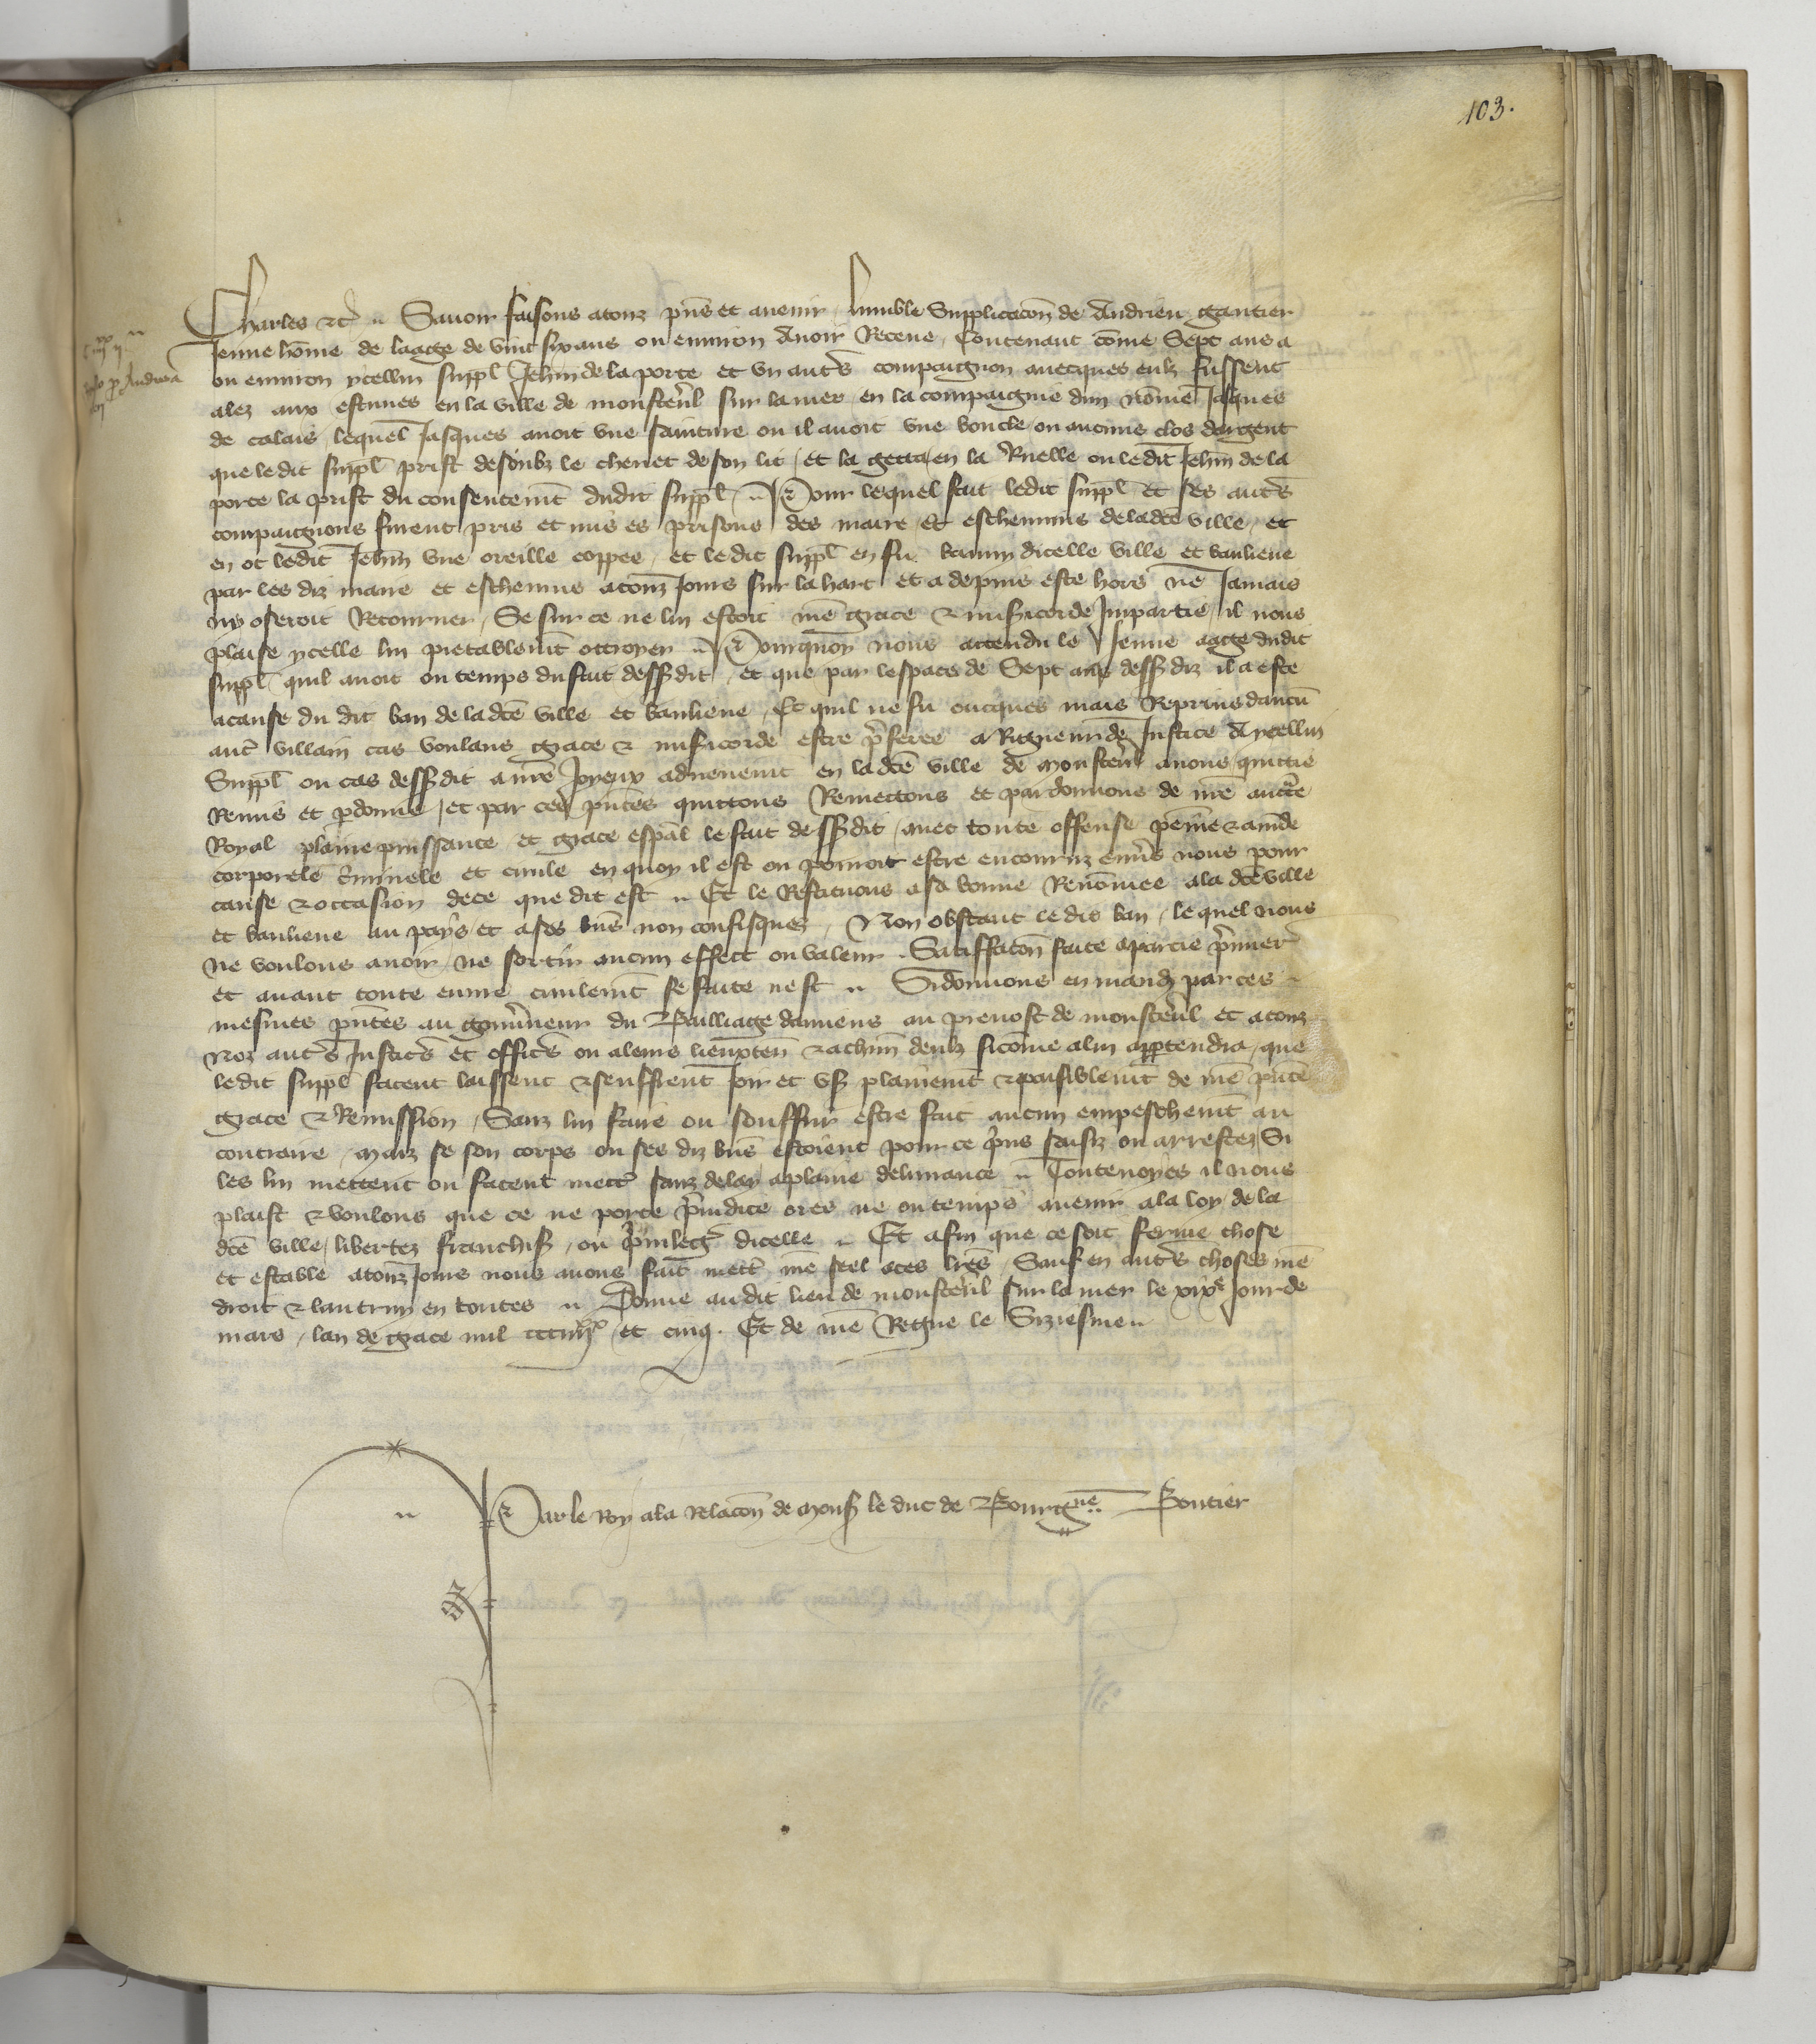 103.
Charles etc̃ Sauoir faisons atouz pñs et auenir humble Supplicacõn de Andrieu gantier
Jenne hõme de laage de vint six ans ou enuiron Auoir Receue, Contenant cõme Sept ans a
ou enuiron ycellui suppl̃ Jehan de la porte et vn autr̃e compaignon auecques eulx fussent
alez aux estuues en la ville de monster̃l sur la mer en la compaignie dun nõme Jasques
de calais, lequel Jasques auoit vne sainture ou il auoit vne boucle ou aucuns clos dargent
que ledit suppl̃ prist desoubz le cheuet de son lit, et la getta en la Ruelle ou ledit Jehñ de la
porte la prist du consentemñt dudit suppl̃ Pour lequel fait ledit suppl̃ et ses autr̃s
compaignons furent pris et mis es prisons des maire et escheuins de lad̃ce ville, et
en ot ledit Jehñ vne oreille coppee, et ledit suppl̃ en fu banny dicelle ville et banlieue
par les diz maire et escheuins atouz Jours sur la hart et a depuis este hors ne Jamais
ny oseroit Retourner, Se sur ce ne lui estoit nr̃e grace & mis̃icorde Impartie, il nous
plaise ycelle lui pietablemñt ottroyer Pourquoy nous attendu le Jenne aage dudit
suppl̃ quil auoit ou temps du fait dess̃dit, et que par lespace de Sept ans dess̃diz il a este
acause du dit ban de lad̃ce ville et banlieue, Et quil ne fu oncques mais Reprins daucũ
autr̃ villain cas voulans grace & mis̃icorde estre p̃feree a Rigueur de Justice A ycellui
Suppl̃ ou cas dess̃dit a nr̃e Joyeux aduenemñt en lad̃ce ville de monster̃l auons quittie
Remis et p̃donne, et par ces pñtes quittons Remettons et pardonnons de nr̃e auct̃e
Royal plaine puissance et grace esp̃al le fait dess̃dit, auec toute offense peine & am̃de
corporele c̃iminele et ciuile en quoy il est ou pourroit estre encouruz enuer̃s nous pour
cause & occasion de ce que dit est Et le Restituons asa bonne Renõmee ala d̃ce ville
et banlieue au pays et ases bñs non confisquez, Non obstant ledit ban, lequel nous
ne voulons auoir, ne sortir aucun effect ou valeur. Satiffacõn faite apartie p̃mier
et auant toute euure ciuilemñt se faite nest Sidonnons en mandẽ par ces
mesmes pñtes au gouũneur du Bailliage damiens au preuost de monster̃l et atouz
noz autr̃s Justic̃s et offic̃s ou aleurs lieuxteñ & achũn deulx sicõme alui app̃tendra, que
ledit suppl̃ facent laissent & seuffrent Joir et vs̃ plainemñt & paisiblemñt de nr̃e pñte
grace & Remission, Sanz lui faire ou souffrir estre fait aucun empeschemñt au
contraire, maiz se son corps ou ses diz bñs estoient pour ce p̃ns saisiz ou arrestez, Si
les lui mettent ou facent mett̃ sanz delay aplaine deliurance Toutenoyes il nous
plaist & voulons que ce ne porte p̃iudice ores ne ou temps auenir ala loy de la
d̃ce ville, libertez franchis̃, ou p̃uileg̃ dicelle Et afin que ce soit ferme chose
et estable atouz Jours nous auons fait mett̃ nr̃e seel aces lr̃es, Sauf en autr̃s choses nr̃e
droit & lautruy en toutes Donne audit lieu de monster̃l sur la mer le xixe Jour de
mars, lan de grace mil ccciiijxx et cinq. Et de nr̃e Regne le Siziesme
Par le Roy ala Relacõn de mons̃ le duc de Bourgne Pontier